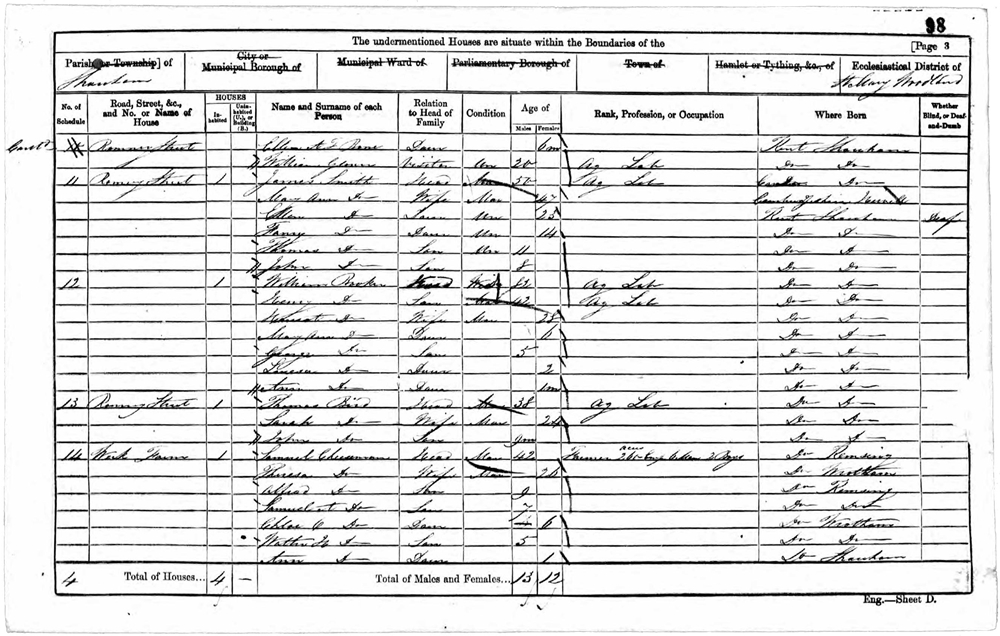 98
The undermentioned Houses are situate within the Boundaries of the [Page 3
Parish [or Township] of Shoreham
City or Municipal Borough of
Municipal Ward of
Parliamentary Borough of
Town of
Hamlet or Tything, &c., of
Ecclesiastical District of St Mary Woodland
No. of Schedule
Road, Street, &c., and No. or Name of House
HOUSES
Inhabited
Uninhabited (U.), or Building (B.)
Name and Surname of each Person
Relation to Head of Family
Condition
Age of
Males
Females
Rank, Profession, or Occupation
Where Born
Whether Blind, or Deaf-and-Dumb
Romney Street Daur 6m Kent Shoreham
William Visitor Un 20 Ag Lab Do Do
11 Romney Street 1 James Smith Head Mar 50 Ag Lab Do
Mary Ann Do Wife Mar 47 Cambridgeshire
Ellen Do Un 25 Kent Shoreham Deaf
Do Daur Un 14 Do Do
Thomas Do Son Un 11 Do Do
John Do Son 8 Do Do
12 1 William Head 82 Ag Lab Do Do
Henry Do Son Mar 42 Ag Lab Do Do
Do Wife Mar 28 Do Do
Mary Ann Do Daur 6 Do Do
George Do Son 5 Do Do
Do Daur 2 Do Do
Ann Do Daur 1m Do Do
13 Romney Street 1 Thomas Bird Head Mar 38 Ag Lab Do Do
Sarah Do Wife Mar 24 Do Do
John Do Son 9m Do Do
14 Farm 1 Samuel Head Mar 42 Farmer Do Kemsing
Theresa Do Wife Mar 26 Do Wrotham
Alfred Do Son 9 Do Kemsing
Samuel Do Son 7 Do Do
Chloe C Do Daur 6 Do Wrotham
Walter H Do Son 5 Do Do
Ann Do Daur 1 Do Shoreham
4 Total of Houses... 4 – Total of Males and Females... 13 12
Eng.—Sheet D.